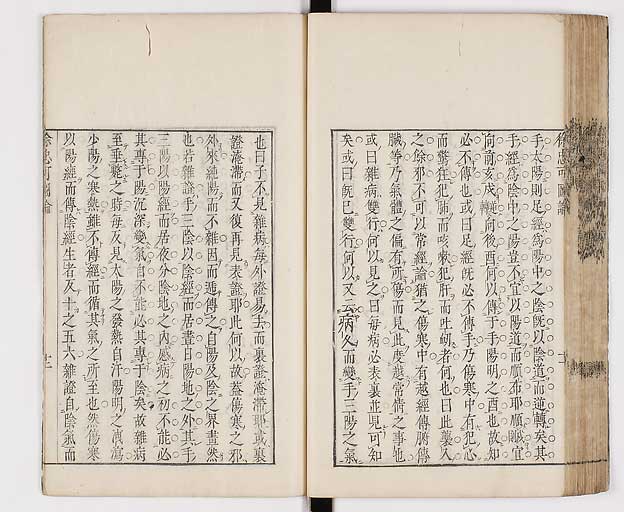 手太陽則足經爲陽中之陰旣以陰道而逆轉矣其
手經爲陰中之陽豈不宜以陽道而順布耶順則宜
向前亥戌逆轉向後酉何以傳于手陽明之酉也故知
必不傳也或曰足經旣必不傳手乃傷寒中有犯心
而驚狂犯肺而咳嗽犯肝而吐蚘者何也曰此裏入
之餘邪不可以常經論猶之傷寒中有越經傳腑傳
臟等乃氣體之偏有所傷而見此度越常倚之事也
或曰雜病雙行何以見之曰每病必表裏並見可知
矣或曰旣已雙行何以又云病久而變手三陽之氣
也曰子不見雜病每外證易去而裏證淹滯耶或裏
證淹滯而又復再見表證耶此何以故蓋傷寒之邪
外來純陽而不雜因而遞傳之自陽及陰之界畫然
也若雜證手三陰以陰經而居晝日陽地之外其手
三陽以陽經而居夜分陰地之內感病之初不能必
其專于陽沉深變氣自不能必其專于陰矣故雜病
至垂斃之時每反見太陽之發熱自汗陽明之濆瀉
少陽之寒熱雖不傳經而循其氣之所至也然傷寒
以陽經而傳陰經生者反十之五六雜證自陰氣而